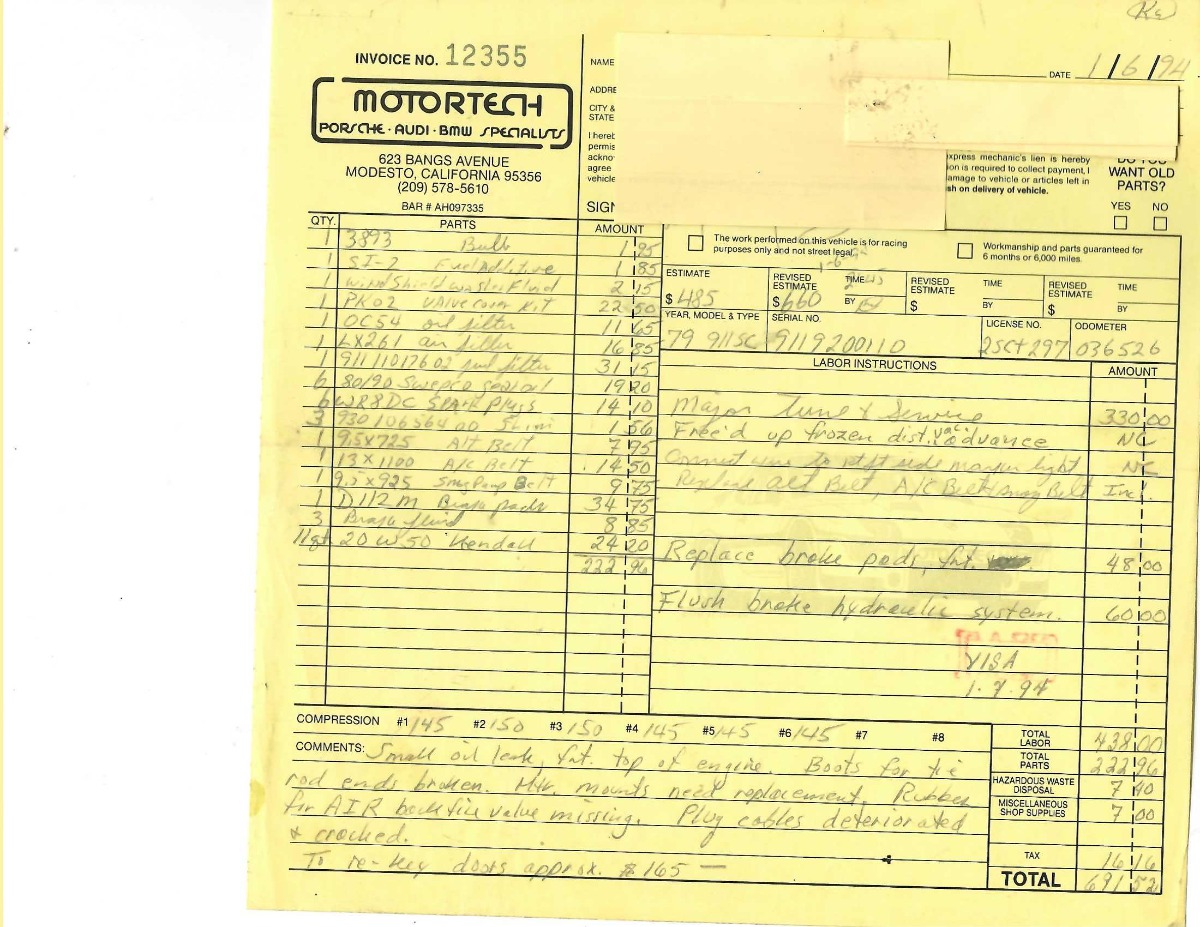 Ke
INVOICE NO. 12355
MOTORTECH
PORSCHE · AUDI · BMW SPECIALISTS
623 BANGS AVENUE
MODESTO, CALIFORNIA 95356
(209) 578-5610
BAR # AH097335
NAME
ADDRE
CITY &
STATE
I hereb
permis
ackno
agree
vehicle
SIGN
DATE 1/6/94
xpress mechanic's lien is hereby
ion is required to collect payment, I
amage to vehicle or articles left in
sh on delivery of vehicle.
DO YOU
WANT OLD
PARTS?
YES NO
The work performed on this vehicle is for racing
purposes only and not street legal.
Workmanship and parts guaranteed for
6 months or 6,000 miles.
ESTIMATE $ 485
REVISED ESTIMATE $ 660 TIME BY
REVISED ESTIMATE $ TIME BY
REVISED ESTIMATE $ TIME BY
YEAR, MODEL & TYPE 79 911SC
SERIAL NO. 9119200110
LICENSE NO. 2SCT297
ODOMETER 036526
QTY. PARTS AMOUNT
1 3893 Bulb 1 95
1 SI-7 Fuel Additive 1 85
1 windshield washer Fluid 2 15
1 PK02 valve cover kit 22 50
1 OC54 oil filter 11 65
1 LX261 air filter 16 85
1 911 110 176 02 fuel filter 31 15
6 80/90 Swepco gear oil 19 20
6 WR8DC SPArk Plugs 14 10
3 930 106 564 00 Shim 1 56
1 9.5x725 Alt Belt 7 95
1 13x1100 A/C Belt 14 50
1 9.5x925 Smog Pump Belt 9 75
1 D112M Brake pads 34 75
3 Brake fluid 8 85
11qt. 20W50 Kendall 24 20
222 96
LABOR INSTRUCTIONS AMOUNT
Major Tune & Service 330 00
Free'd up frozen dist. vac. advance NC
Connect wire to rt. ft side marker light NC
Replace Alt Belt, A/C Belt, smog Belt Incl.
Replace brake pads, fnt. 48 00
Flush brake hydraulic system. 60 00
VISA
1.7.94
COMPRESSION #1 145 #2 150 #3 150 #4 145 #5 145 #6 145 #7 #8
COMMENTS: Small oil leak, fnt. top of engine. Boots for tie
rod ends broken. Mtr. mounts need replacement. Rubber
for AIR backfire valve missing. Plug cables deteriorated
& cracked.
To re-key doors approx. $165 —
TOTAL LABOR 438 00
TOTAL PARTS 222 96
HAZARDOUS WASTE DISPOSAL 7 40
MISCELLANEOUS SHOP SUPPLIES 7 00
TAX 16 16
TOTAL 691 52